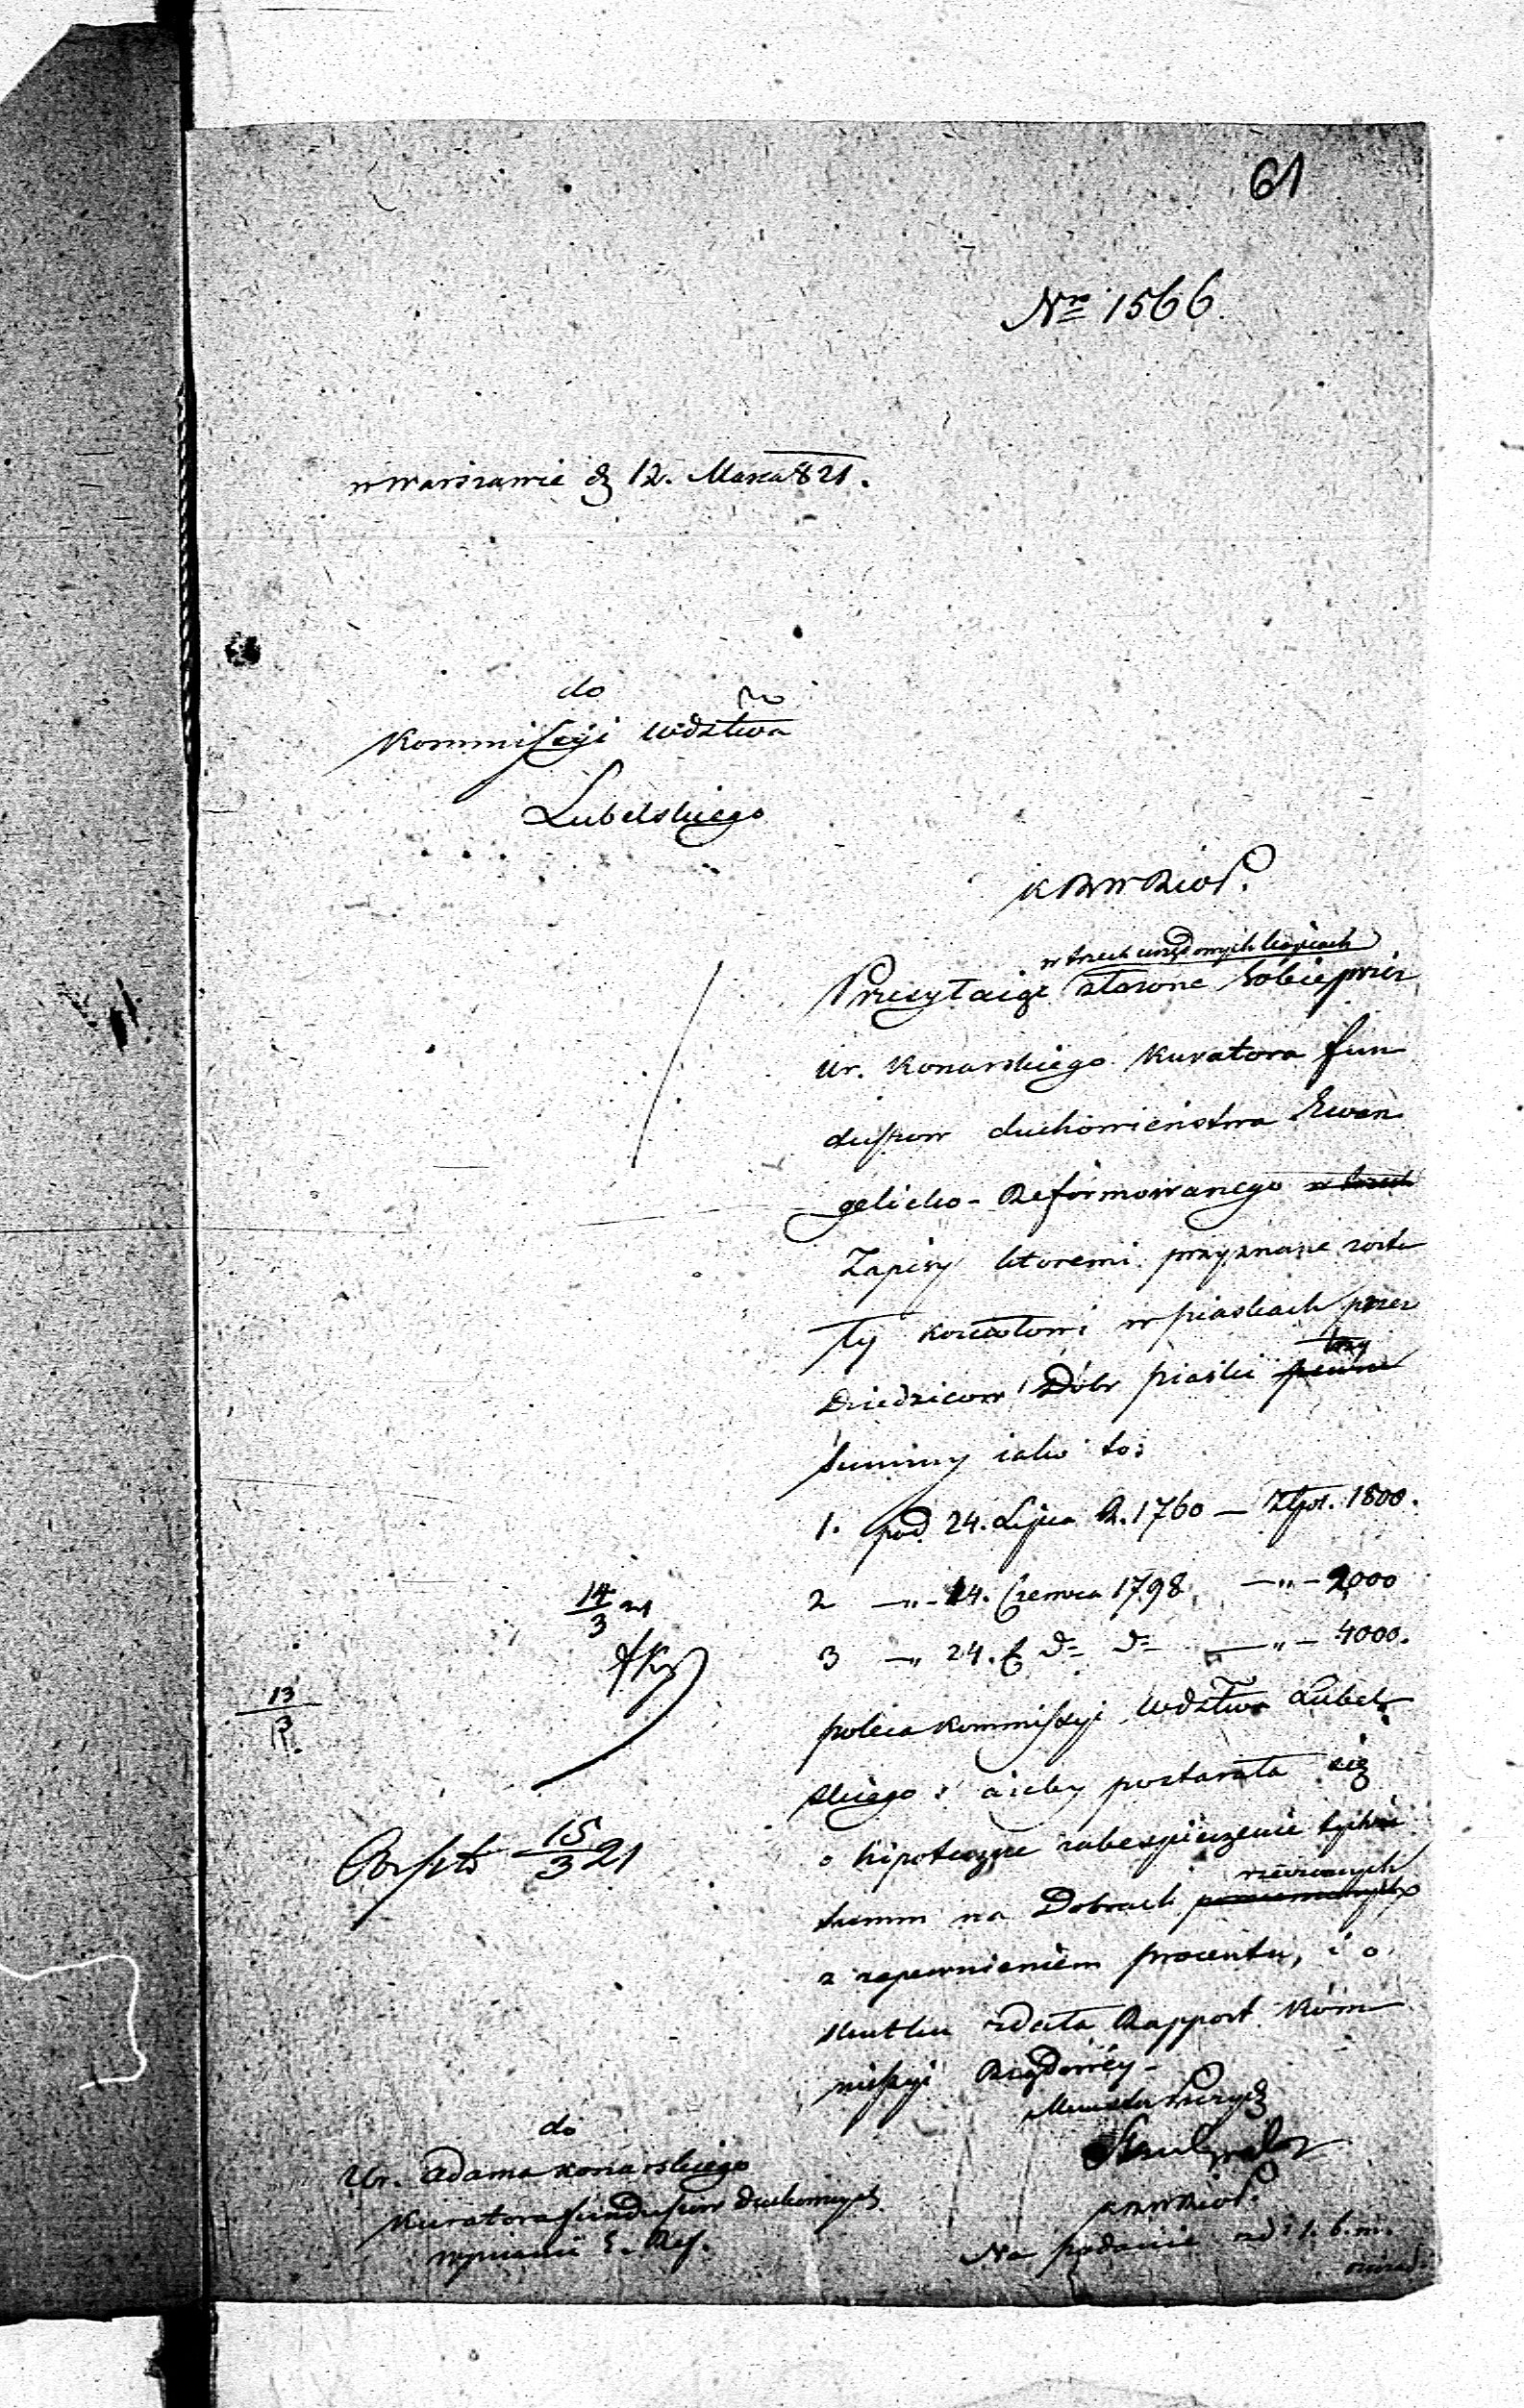 61
Nro 1566.
w Warszawie d 12. Marca 821.
do
Kommissyi Wdztwa
Lubelskiego
K R W R i O P.
w trzech urzędowych kopiach
Przesyłaiąc złożone sobie przez
Ur. Konarskiego Kuratora fun
duszow duchowieństwa Ewan
gelicko-Reformowanego w trzech
Zapisy któremi przyznane zosta
ły kosciołowi w piaskach przez
Dziedzicow Dóbr piaski pewne
trzy
summy iako to:
1. pod 24. Lipca R. 1760 — Złpol. 1800.
2 —„— 14. Czerwca 1798 —„— 2000
3 —„ 24. d= d= —„— 4000.
poleca Kommissyi Wdztwa Lubel
skiego: ażeby postarała się
o hipoteczne zabespieczenie tychże
summ na Dobrach
rzeczonych
z zapewnieniem procentu, i o
skutku zdała Rapport Kom
missyi Rządowéy-
Minister Prezyd
14/3 21
13/3
15/3 21
do
Ur. Adama Konarskiego
Kuratora funduszow duchownych
wyznania E. Ref.
K R W R i O P.
Na podanie